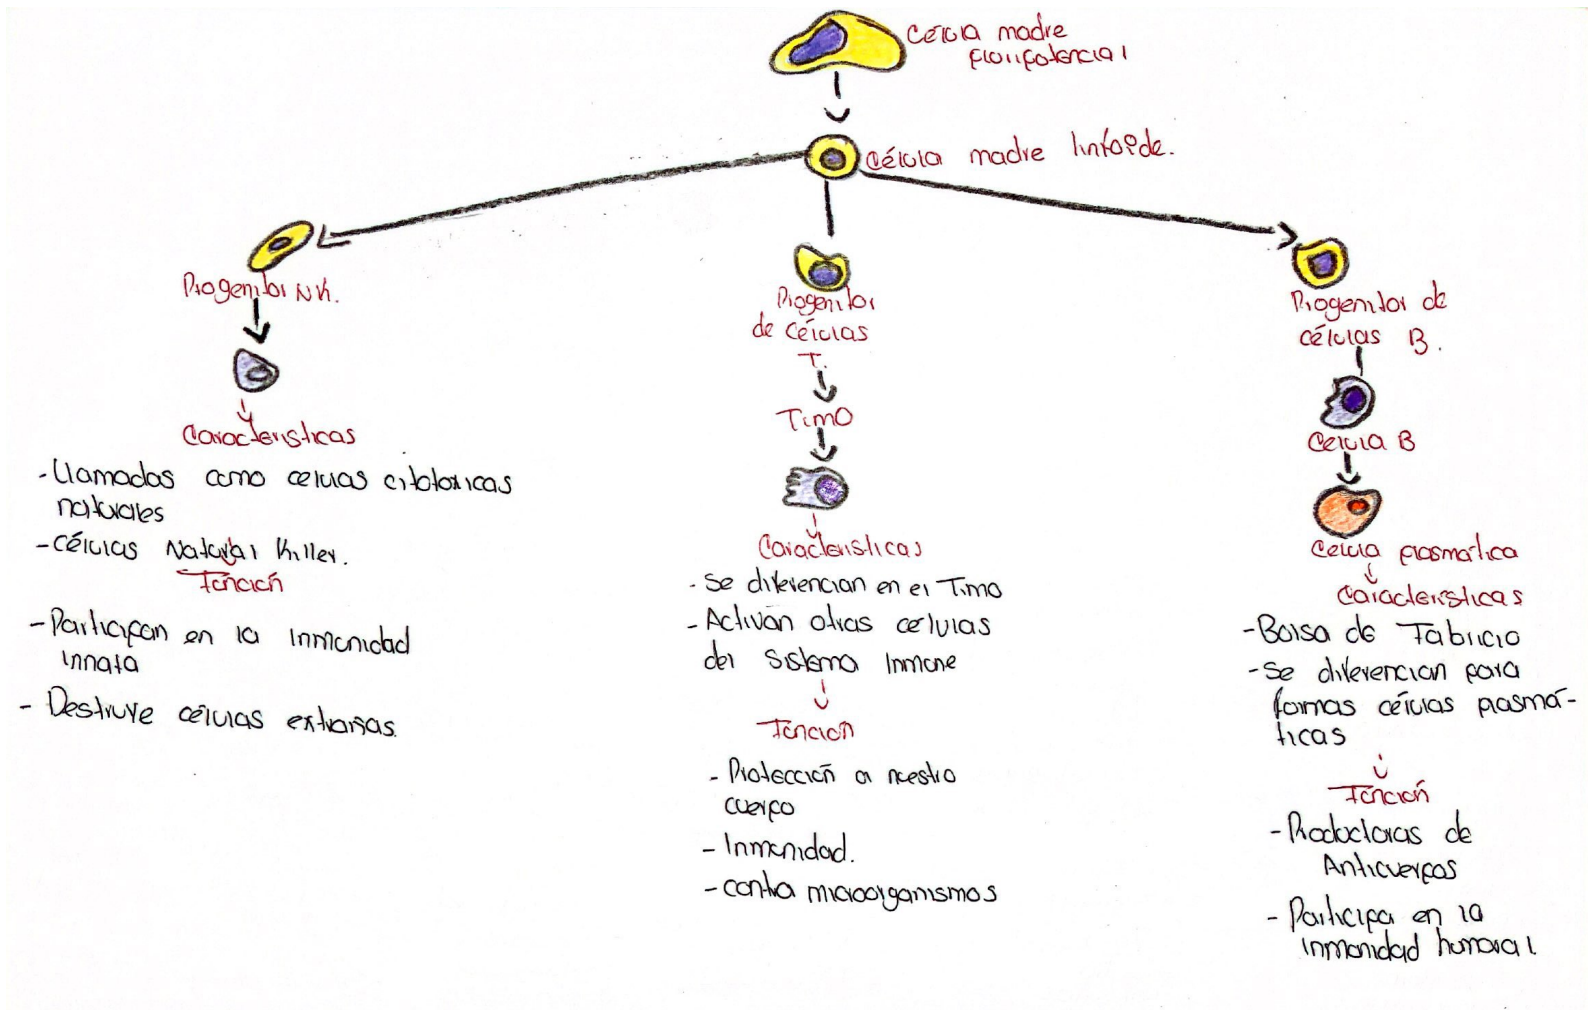 Célula madre
pluripotencial
Célula madre linfoide.
Progenitor NK.
Características
- Llamadas como celulas citotoxicas
naturales
- Células Natural Killer.
Función
- Participan en la inmunidad
innata
- Destruye células extrañas.
Progenitor
de Células
T.
Timo
Características
- Se diferencian en el Timo
- Activan otras células
del sistema Inmune
Función
- Protección a nuestro
cuerpo
- Inmunidad.
- contra microorganismos
Progenitor de
células B.
Celula B
Celula plasmática
Características
- Bolsa de Fabricio
- Se diferencian para
formas células plasmá-
ticas
Función
- Productoras de
Anticuerpos
- Participa en la
inmunidad humoral.